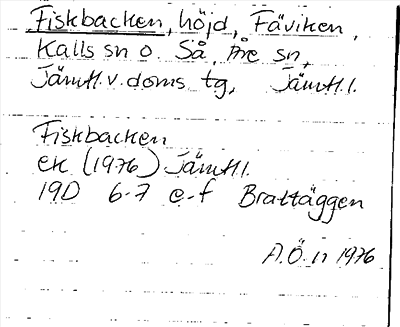 Fiskbacken, höjd, Fäviken,
Kalls sn o. Så, Åre sn,
Jämtl. v. doms tg, Jämtl. l.
Fiskbacken
ek (1976) Jämtl. l.
19D 6-7 e-f Brattäggen
A.Ö. in 1976